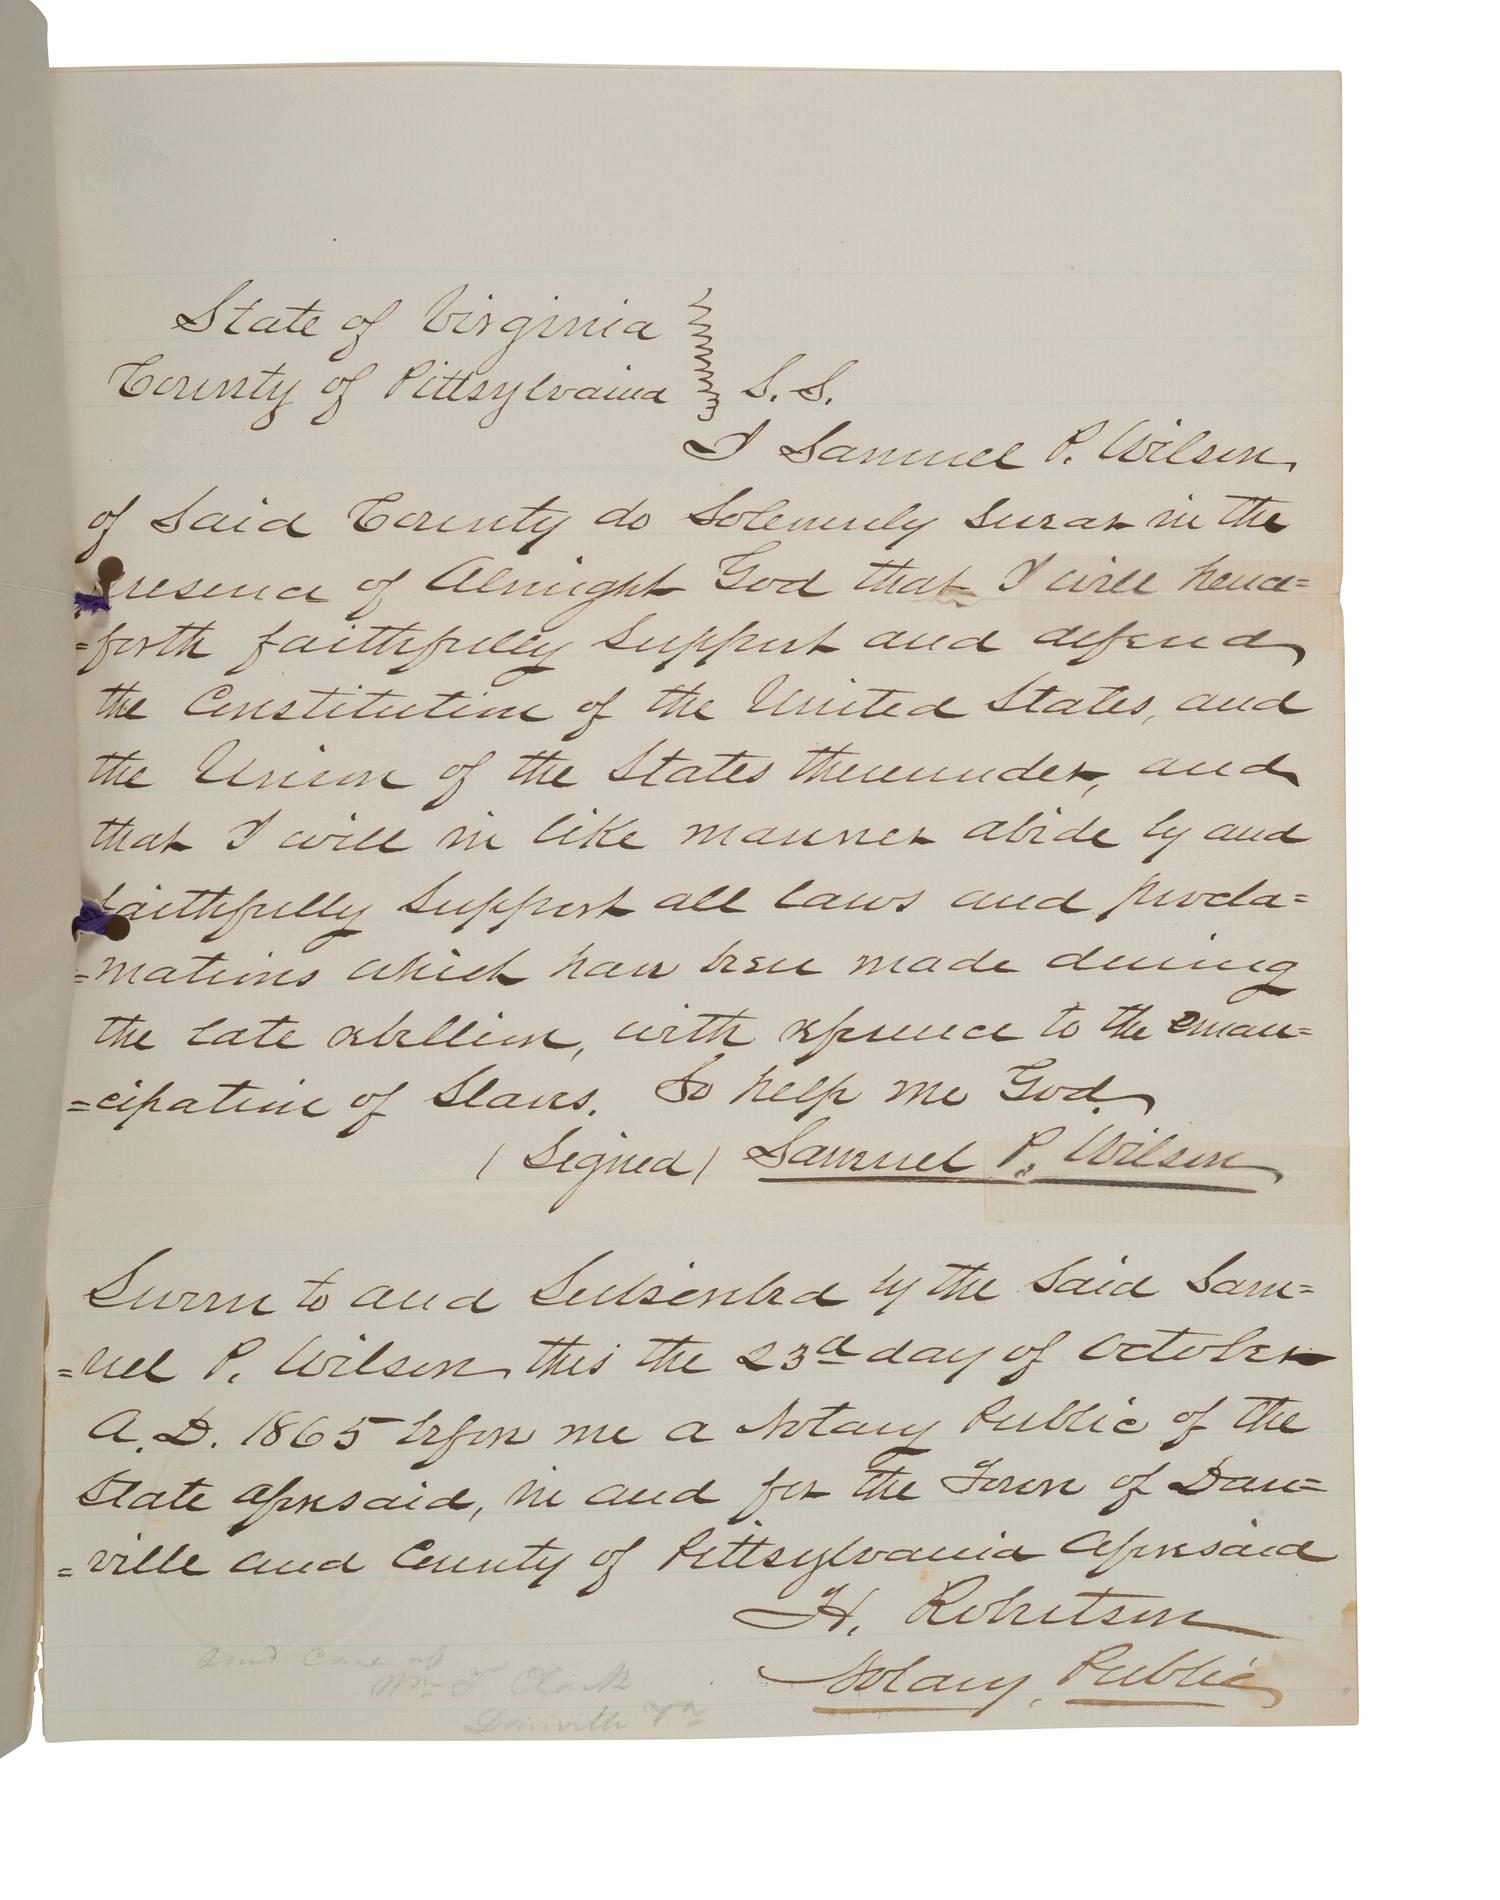 State of Virginia
County of Pittsylvania S. S.
I Samuel P. Wilson
of Said County do Solemnly Swear in the
presence of Almight God that I will hence=
=forth faithfully Support and defend
the Constitution of the United States, and
the Union of the States thereunder, and
that I will in like manner abide by and
faithfully Support all laws and procla=
=mations which have been made during
the late rebellion, with reference to the eman=
=cipation of Slaves. So help me God.
(Signed) Samuel P. Wilson
Sworn to and Subscribed by the Said Sam=
=uel P. Wilson this the 23d day of October
A. D. 1865 before me a Notary Public of the
State aforesaid, in and for the Town of Dan=
=ville and County of Pittsylvania aforesaid
H. Robertson
Notary Public
Send care of
Wm T. Clark
Danville Va